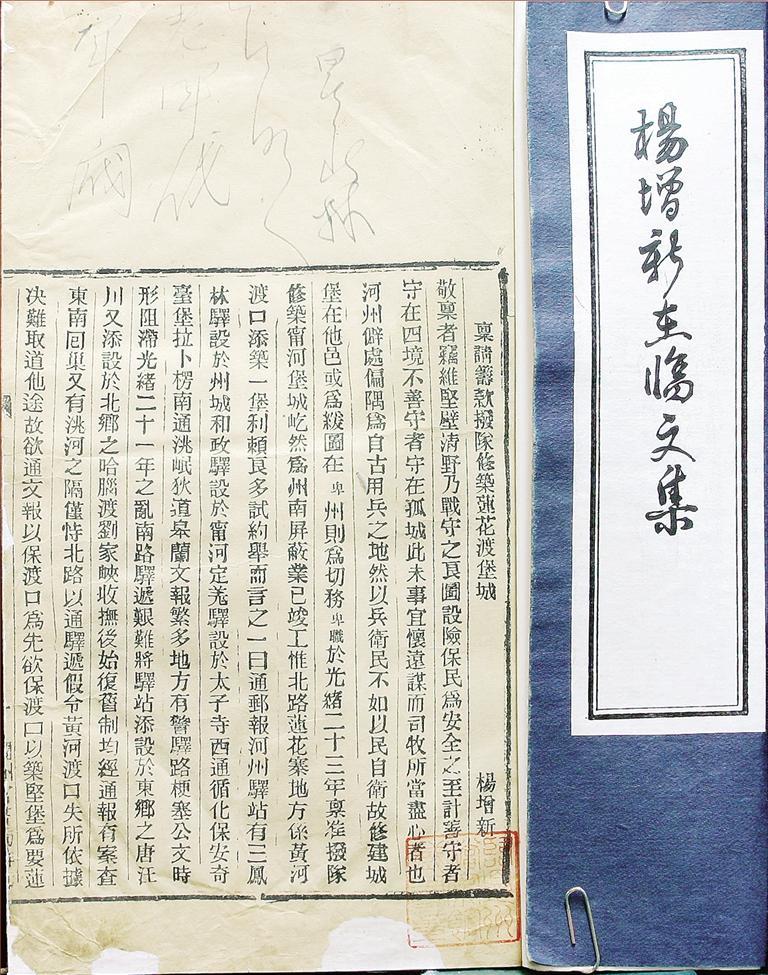 楊增新在臨文集
稟請籌款撥隊修築蓮花渡堡城
楊增新
敬稟者竊維堅壁清野乃戰守之良圖設險保民為安全之至計善守者
守在四境不善守者守在孤城此未事宜懷遠謀而司牧所當盡心者也
河州僻處偏隅為自古用兵之地然以兵衛民不如以民自衛故修建城
堡在他邑或為緩圖在卑州則為切務卑職於光緒二十三年稟准撥隊
修築甯河堡城屹然為州南屏蔽業已竣工惟北路蓮花寨地方係黃河
渡口添築一堡利賴良多試約舉而言之一曰通郵報河州驛站有三鳳
林驛設於州城和政驛設於甯河定羌驛設於太子寺西通循化保安奇
臺堡拉卜楞南通洮岷狄道皋蘭文報繁多地方有警驛路梗塞公文時
形阻滯光緒二十一年之亂南路驛遞艱難將驛站添設於東鄉之唐汪
川又添設於北鄉之哈腦渡劉家峽收撫後始復舊制均經通報有案查
東南囘巢又有洮河之隔僅恃北路以通驛遞假令黃河渡口失所依據
决難取道他途故欲通文報以保渡口為先欲保渡口以築堅堡為要蓮